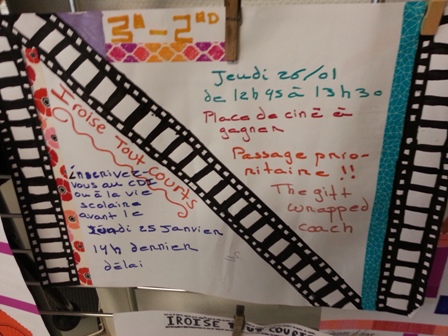 3è - 2ND
Jeudi 26/01
de 12h45 à 13h30
Place de ciné à
gagner
Passage prio-
ritaire !!
The gift
wrapped
coach
Iroise Tout Courts
inscrivez-
vous au CDI
ou à la vie
scolaire
avant le
Jeudi 25 janvier
14h dernier
délai
IROISE TOUT COURTS